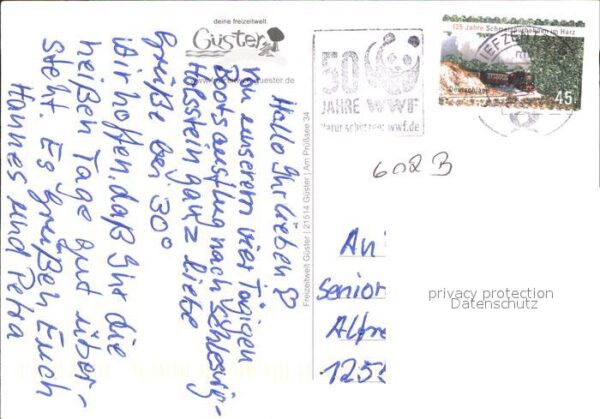 deine freizeitwelt
Güster
Hallo Ihr Lieben
von unserem vier Tägigen
Bootsausflug nach Schleswig-
Holsstein ganz liebe
Grüße bei 30°
Wir hoffen, daß Ihr die
heißen Tage gut über-
steht. Es grüßen Euch
Hannes und Petra
Freizeitwelt Güster | 21514 Güster | Am Prüßsee 34
50
JAHRE WWF
wwf.de
125 Jahre Schmalspurbahnen im Harz
Deutschland
45
BRIEFZENTRUM
602 B
An
Senior
Alfre
125
privacy protection
Datenschutz